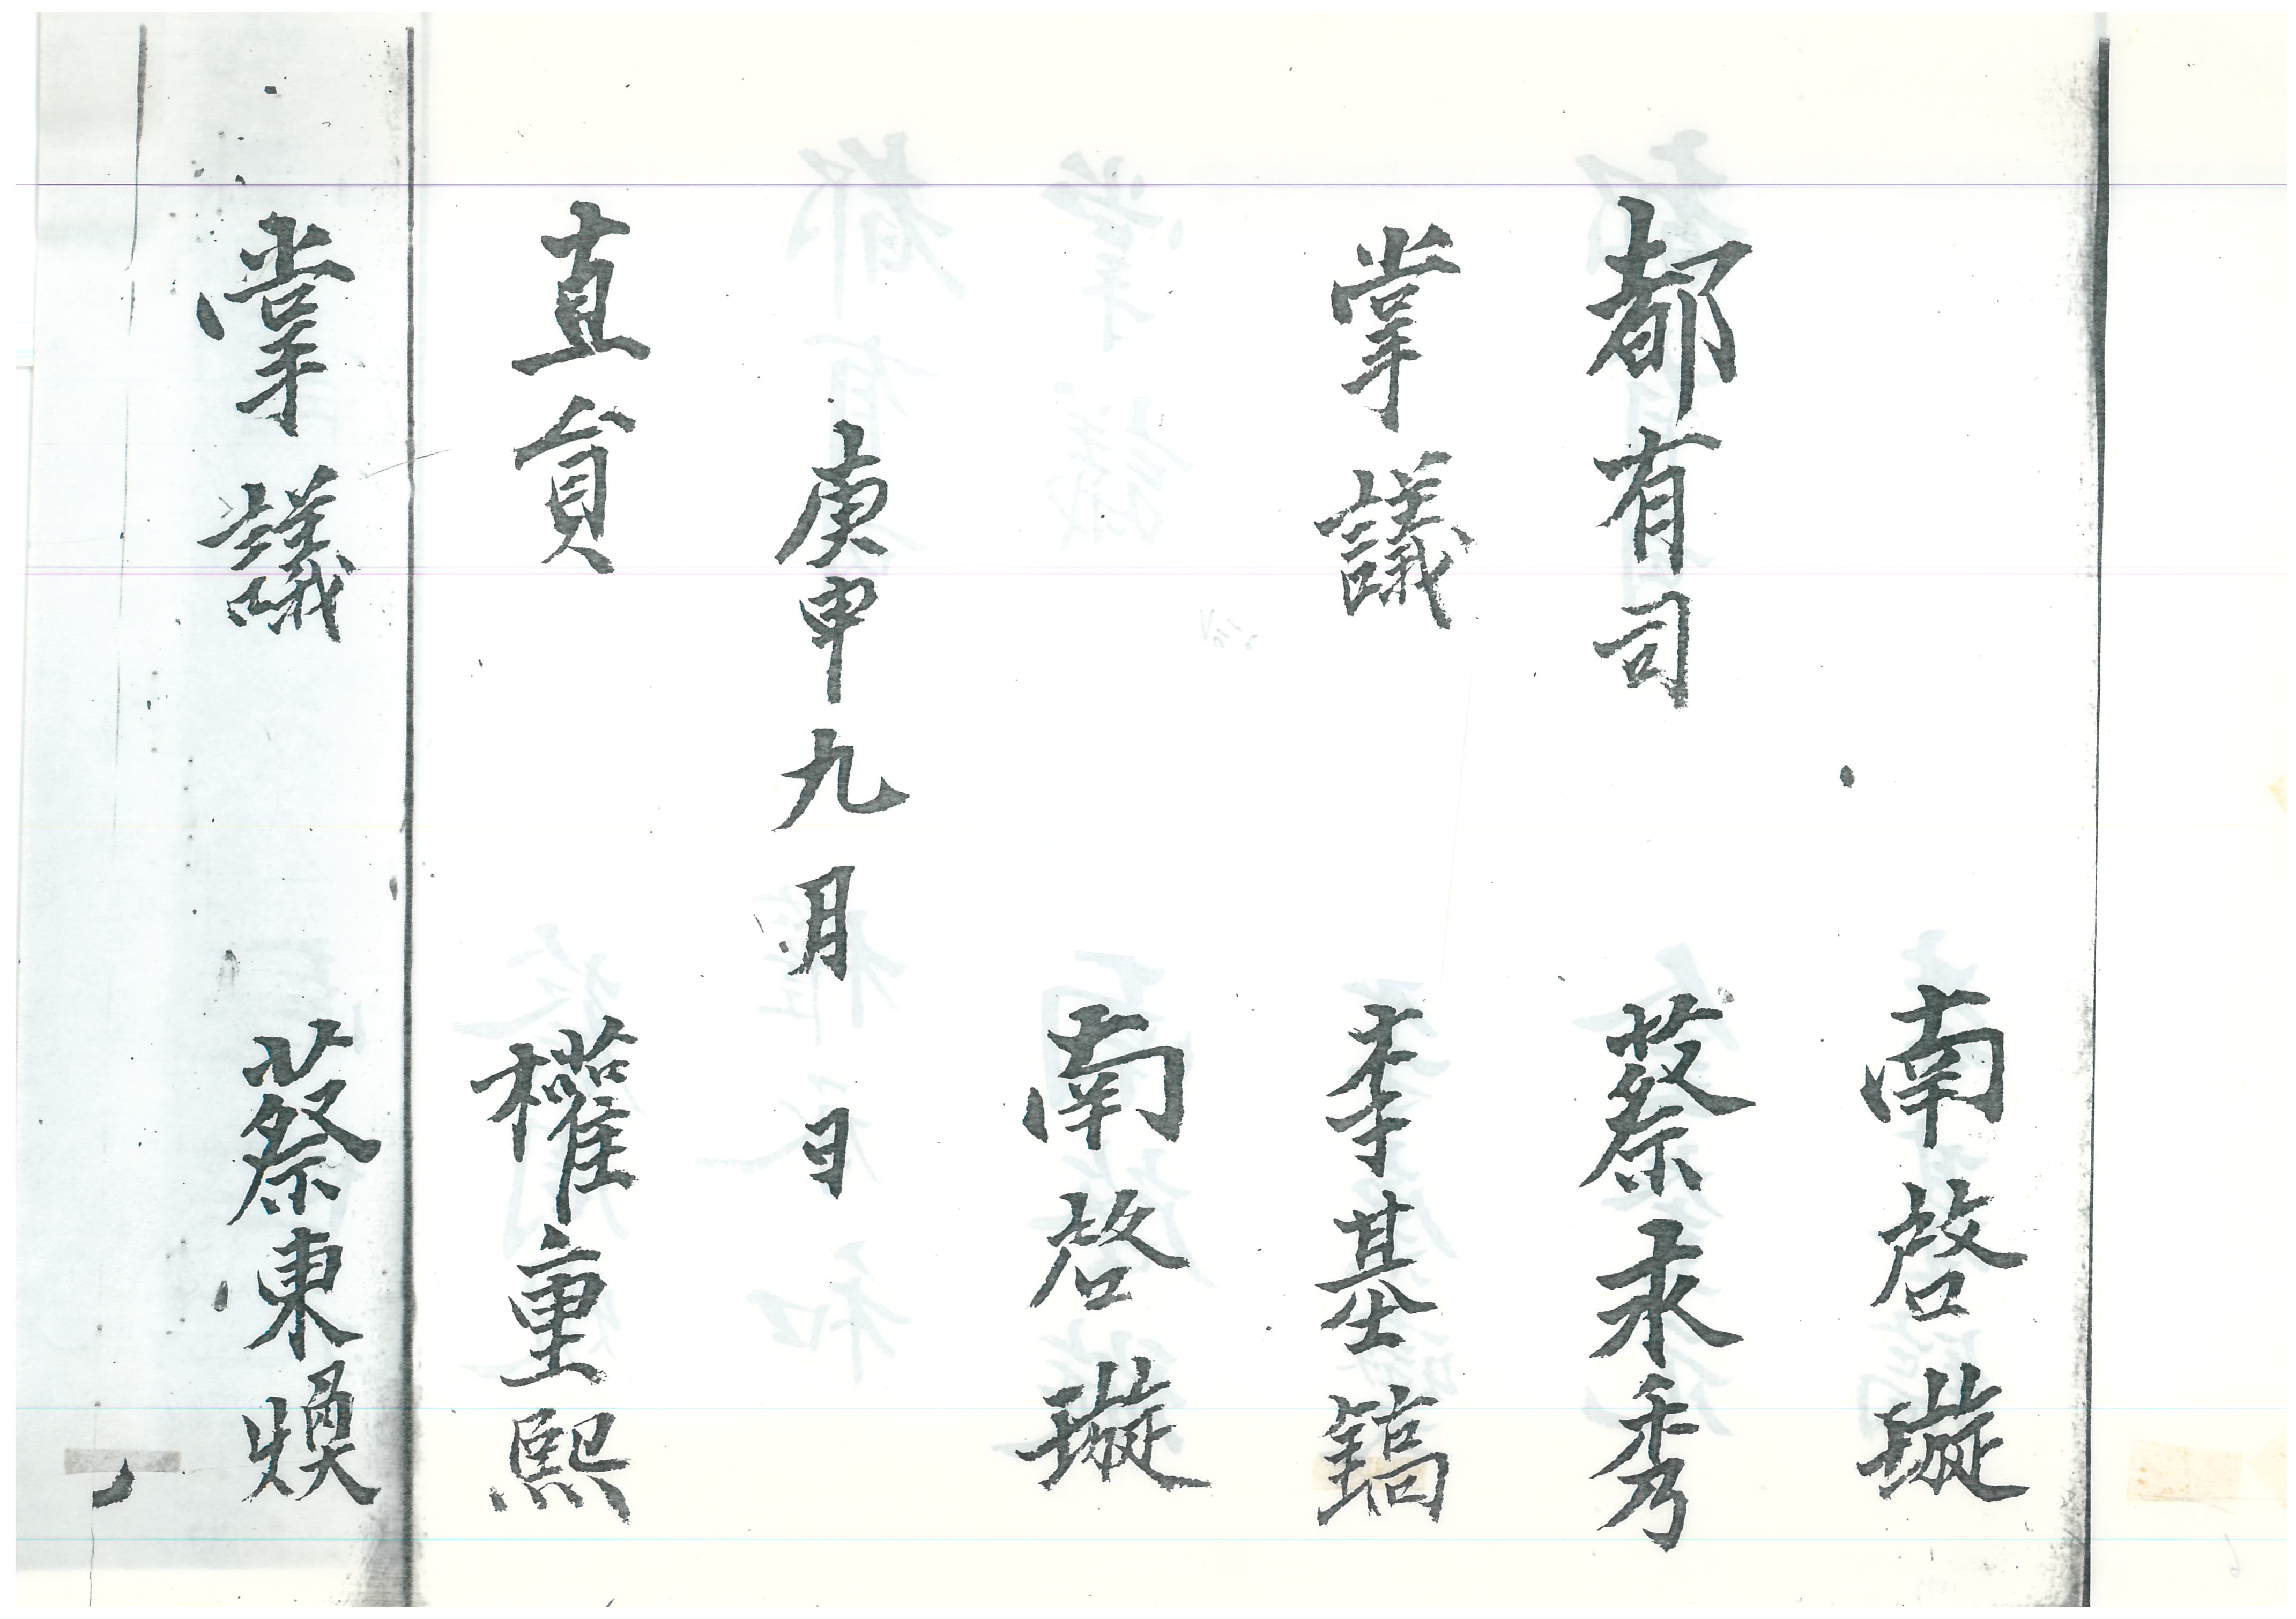 南啓璇
都有司 蔡永秀
掌議 李基鎬
南啓璇
庚申九月 日
直貟 權重熙
掌議 蔡東煥